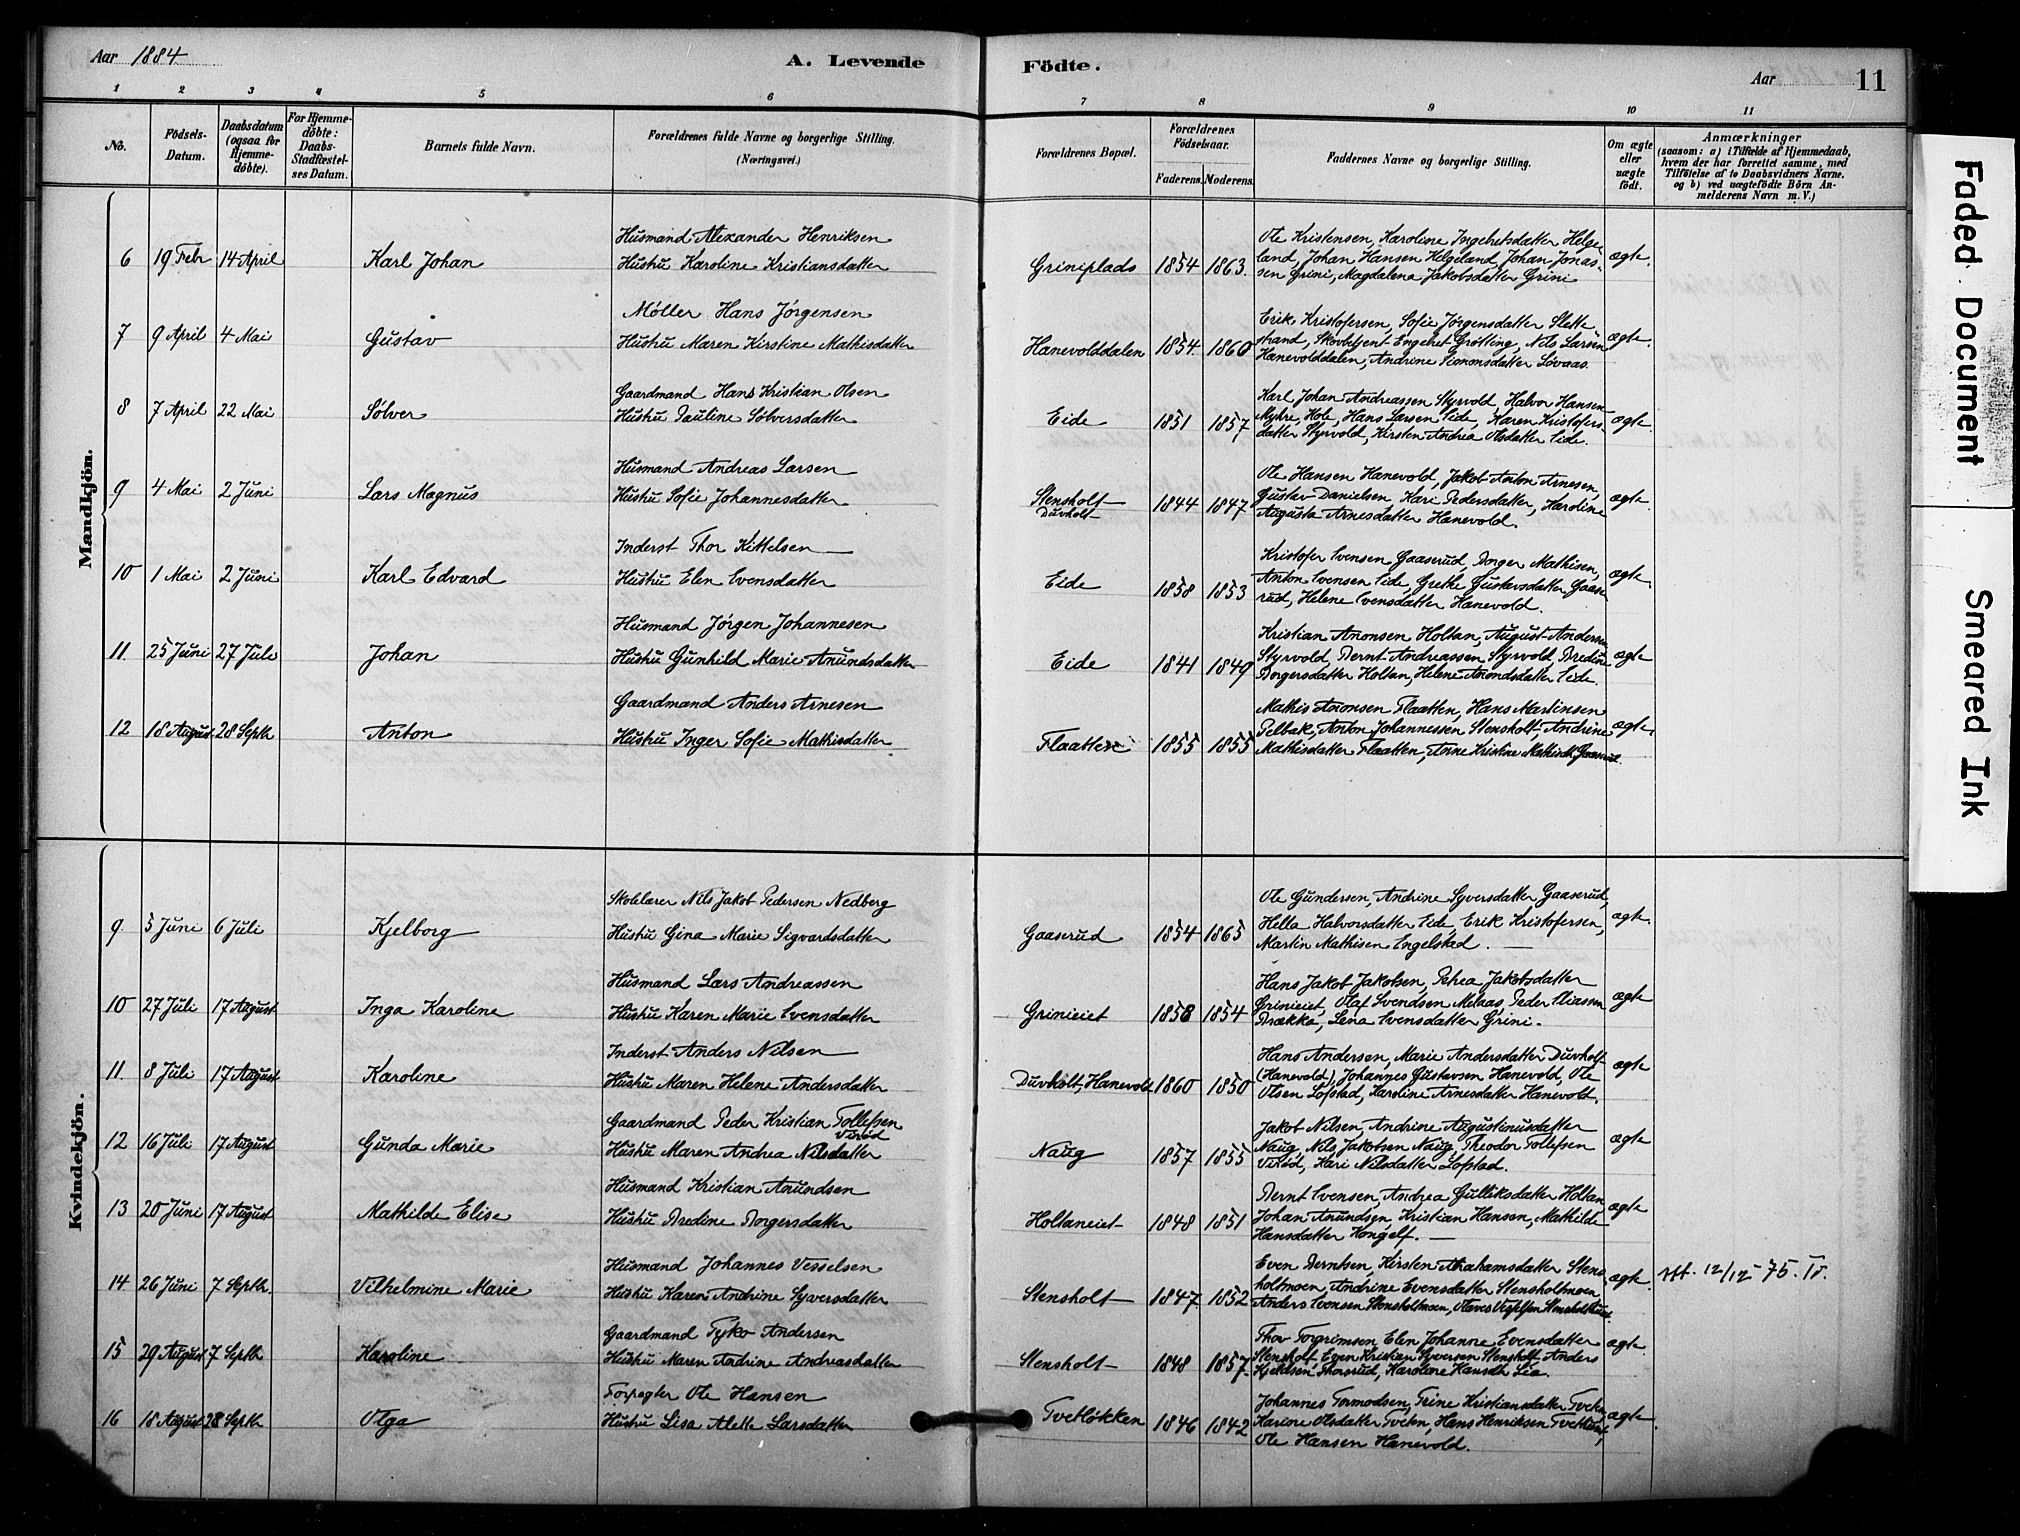 Aar 1884
A. Levende Födte.
Aar 11
1 2 3 4 5 6 7 8 9 10 11
No.
Födsels-Datum.
Daabsdatum (ogsaa for Hjemme-döbte).
For Hjemme-döbte: Daabs-Stadfæstel-ses Datum.
Barnets fulde Navn.
Forældrenes fulde Navne og borgerlige Stilling.
(Næringsvei.)
Forældrenes Bopæl.
Forældrenes Födselsaar.
Faderens. Moderens.
Faddernes Navne og borgerlige Stilling.
Om ægte eller uægte födt.
Anmærkninger
(saasom: a) i Tilfælde af Hjemmedaab, hvem der har forrettet samme, med Tilföielse af to Daabsvidners Navne. og b) ved uægtefödte Börn Anmelderens Navn m. V.)
Mandkjön.
Husmand Alexander Henriksen
6 19 Febr 14 April Karl Johan Hustru Karoline Kristiansdatter Griniplads 1854 1863
Ole Kristensen, Karoline Ingebretsdatter Helge-
land, Johan Hansen Helgeland, Johan Jonas-
sen Grini, Magdalena Jakobsdatter Grini
ægte.
Møller Hans Jørgensen
7 9 April 4 Mai Gustav Hustru Maren Kirstine Mathisdatter Hanevolddalen 1854 1860
Erik Kristofersen, Sofie Jørgensdatter Slette-
strand, Skovbetjent Engebret Grøtting, Nils Larsen
Hanevolddalen, Andrine Simonsdatter Løvaas.
ægte.
Gaardmand Hans Kristian Olsen
8 7 April 22 Mai Sølver Hustru Pauline Sølversdatter Eide 1851 1857
Karl Johan Andreassen Styrvold, Halvor Hansen
Myhre, Hole, Hans Larsen Eide, Karen Kristofers-
datter Styrvold, Kirsten Andrea Olsdatter Eide.
ægte
Husmand Andreas Larsen
9 4 Mai 2 Juni Lars Magnus Hustru Sofie Johannesdatter Stensholt Duvholt 1844 1847
Ole Hansen Hanevold, Jakob Anton Arnesen,
Gustav Danielsen, Kari Pedersdatter, Karoline
Augusta Arnesdatter Hanevold.
ægte
Inderst Thor Kittelsen
10 1 Mai 2 Juni Karl Edvard Hustru Elen Evensdatter Eide 1858 1853
Kristofer Evensen Gaaserud, Borger Mathisen,
Anton Evensen Eide, Grethe Gustavsdatter Gaase-
rud, Helene Evensdatter Hanevold.
ægte
Husmand Jørgen Johannesen
11. 25 Juni 27 Juli Johan Hustru Gunhild Marie Anundsdatter Eide 1841 1849
Kristian Anonsen Holtan, August Andersen
Styrvold, Bernt Andreassen Styrvold, Bredine
Borgersdatter Holtan, Helene Anondsdatter Eide.
ægte
Gaardmand Anders Arnesen
12 18 August 28 Septb Anton Hustru Inger Sofie Mathisdatter Flaatten 1855 1855
Mathis Anonsen Flaatten, Hans Martinsen
Pelbak, Anton Johannessen Stensholt, Andrine
Mathisdatter Flaatten, Anne Kristine Mathisdt. Gaaserud.
ægte.
Kvindekjön.
Skolelærer Nils Jakob Pedersen Nedberg
9 5 Juni 6 Juli Kjelborg Hustru Gina Marie Sigvardsdatter Gaaserud 1854 1865
Ole Gundersen, Andrine Syversdatter Gaaserud,
Hella Halvorsdatter Eide, Erik Kristofersen,
Martin Mathisen Engelstad.
ægte.
Husmand Lars Andreassen
10 27 Juli 17 August Inga Karoline Hustru Karen Marie Evensdatter Grinieiet 1858 1854
Hans Jakob Jakobsen, Petrea Jakobsdatter
Grinieiet, Olaf Svendsen Melaas, Peder Eliassen
Brækka, Lena Evensdatter Grini.
ægte
Inderst Anders Nilsen
11. 8 Juli 17 August Karoline Hustru Maren Helene Andersdatter Duvholt, Hanevold 1860 1850
Hans Andersen, Marie Andersdatter Duvholt
(Hanevold), Johannes Gustavsen Hanevold, Ole
Olsen Lofstad, Karoline Arnesdatter Hanevold.
ægte
Gaardmand Peder Kristian Tollefsen
Virød
12 16 Juli 17 August Gunda Marie Hustru Maren Andrea Nilsdatter Naug 1857 1855
Jakob Nilsen, Andrine Augustinusdatter
Naug, Nils Jakobsen Naug, Theodor Tollefsen
Virød, Kari Nilsdatter Lofstad.
ægte
Husmand Kristian Anundsen
13 20 Juni 17 August Mathilde Elise Hustru Bredine Borgersdatter Holtaneiet 1848 1851
Bernt Evensen, Andrea Gulliksdatter Holtan,
Johan Anundsen, Kristian Hansen, Mathilde
Hansdatter Kongelf.
ægte
Husmand Johannes Vesselsen
14 26 Juni 7 Septb. Vilhelmine Marie Hustru Karen Andrine Syversdatter Stensholt 1847 1852
Even Berntsen, Kirsten Abrahamsdatter Stens-
holtmoen, Andrine Evensdatter Stensholtmoen,
Anders Evensen Stensholtmoen,
ægte. 12/12 75.
Gaardmand Tyko Andersen
15 29 August 7 Septb Karoline Hustru Maren Andrine Andreasdatter Stensholt 1848 1857
Thor Torgrimsen, Elen Johanne Evensdatter
Stensholt, Even Kristian Syversen Stensholt, Anders
Kjeldsen Thorsrud, Karoline Hansdtr Lia.
ægte.
Forpagter Ole Hansen
16 18 August 28 Septb Olga Hustru Lisa Alette Larsdatter Tvetløkken 1846 1842
Johannes Tormodsen, Trine Kristiansdatter Tveten,
Karine Olsdatter Tveten, Hans Henriksen
Ole Hansen Hanevold.
ægte.
Faded Document
Smeared Ink